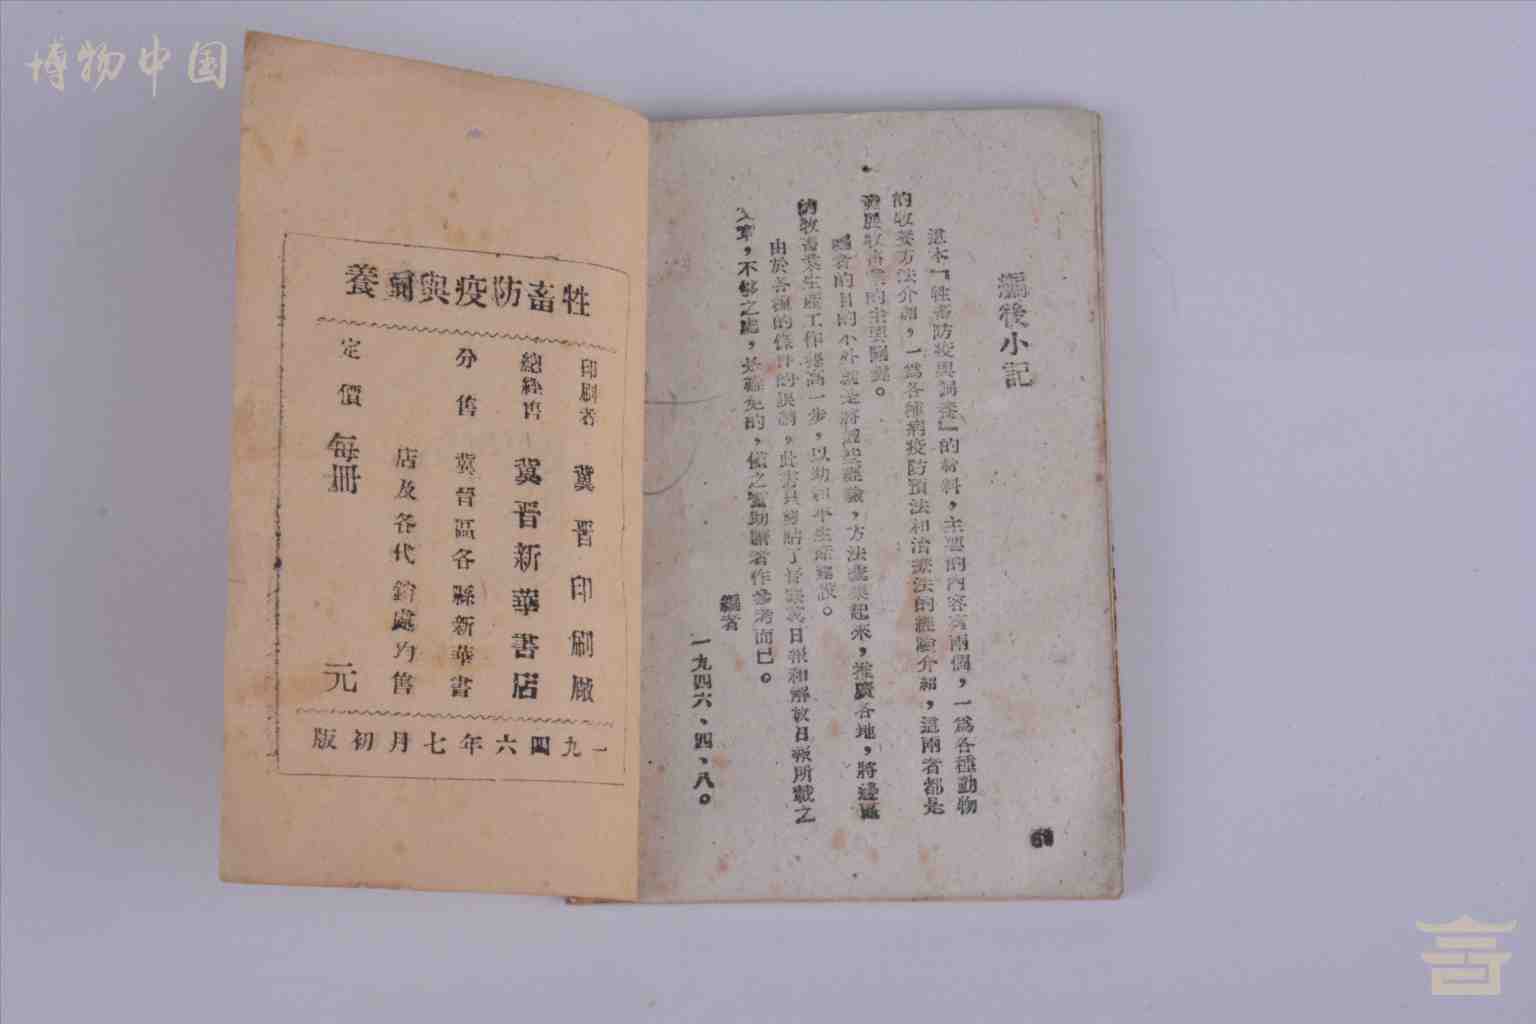 博物中国
編後小記
這本『牲畜防疫與飼養』的材料，主要的內容有兩個，一爲各種動物
的牧養方法介紹，一爲各種病疫防預法和治療法的經驗介紹，這兩者都是
發展牧畜業的主要關鍵。
編者的目的不外就是將這些經驗，方法蒐集起來，推廣各地，將邊區
的牧畜業生產工作提高一步，以助和平生產建設。
由於各種的條件的限制，此書只剪貼了晉察冀日報和解放日報所載之
文章，不够之處，是難免的，僅之當助讀者作參考而已。
編者
一九四六、四、八。
牲畜防疫與飼養
印刷者 冀晋印刷廠
總經售 冀晋新華書店
分售 冀晋區各縣新華書
店及各代銷處均售
定價 每冊 元
一九四六年七月初版